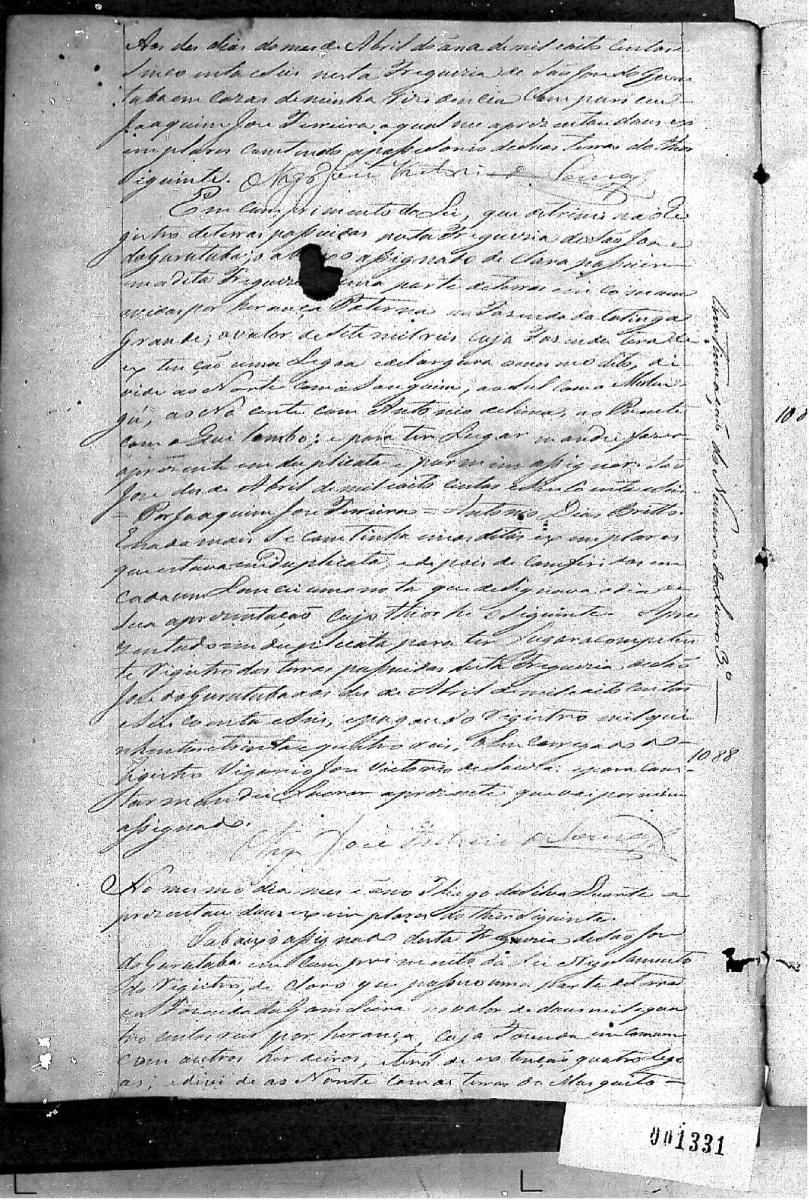 Aos des dias do mes de Abril do ano de mil oito centos e
sinco enta e seis nesta Freguezia de São Jose do Goru
tuba em cazas de minha rizidencia compareceu
Joaquim Jose Ferreira o qual me aprezentou dous ex
implares contendo apossessorio de suas terras do thior
siguinte.
Em cumprimento da Lei, que detremina o Re
gistro de terras possuidas nesta Freguezia de São Jose
do Gurutuba; o abaixo assignado de clara possuir
na dita Freguezia uma parte de terras em comum
avidas por herança Paterna na Fazenda da Catinga
Grande; o valor de sete mil reis cuja Fazenda tera de
extenção uma Legoa e de largura o mesmo dito, de
vide ao Norte com o , ao Sul com o
, ao Na cente com Antonio de Lima, ao Poente
com o Qui lombo; e para ter Lugar mandei fazer
aprezente em duplicata e por mim assignar. São
Jose des de Abril de mil oito centos e sinco enta e seis
= Por Joaquim Jose Ferreira = Antonio Dias Britto
E nada mais se continha em os ditos exemplares
que estava em duplicata, e depois de conferidos em
cada um Lancei uma nota que designava o dia de
sua aprezentação cujo thior he o siguinte. Apre
zentado em duplicata para ter Lugar o competen
te Rigistro das terras possuidas desta Freguezia de São
Jose do Gurutuba aos des de Abril de mil oito centos
e sinco enta e seis, e pagou do Rigistro mil qui
nhentos e trinta e quatro reis, O Encarregado do
Rigistro Vigario Jose Victorio de Souza: e para cons
tar mandei Lavrar aprezente, que vai por mim
assignado.
Vigº Jose Victorio de Souza
No mesmo dia mes e ano Thiago da Silva Duarte a
prezentou dous exemplares do thior siguinte.
O abaixo assignado desta Freguezia de São Jose
do Gurutuba em cumprimento da Lei e Regulamento
do Rigistro, de claro que possuo uma parte de terras
na Fazenda da Gamileira no valor de dous mil e qua
tro centos reis por herança, cuja Fazenda em comum
com outros herdeiros, terá de extenção quatro Lego
as; e divide ao Norte com as terras do Mosquito =
Continuação do Numero do Livro 3º
1088
100
001331